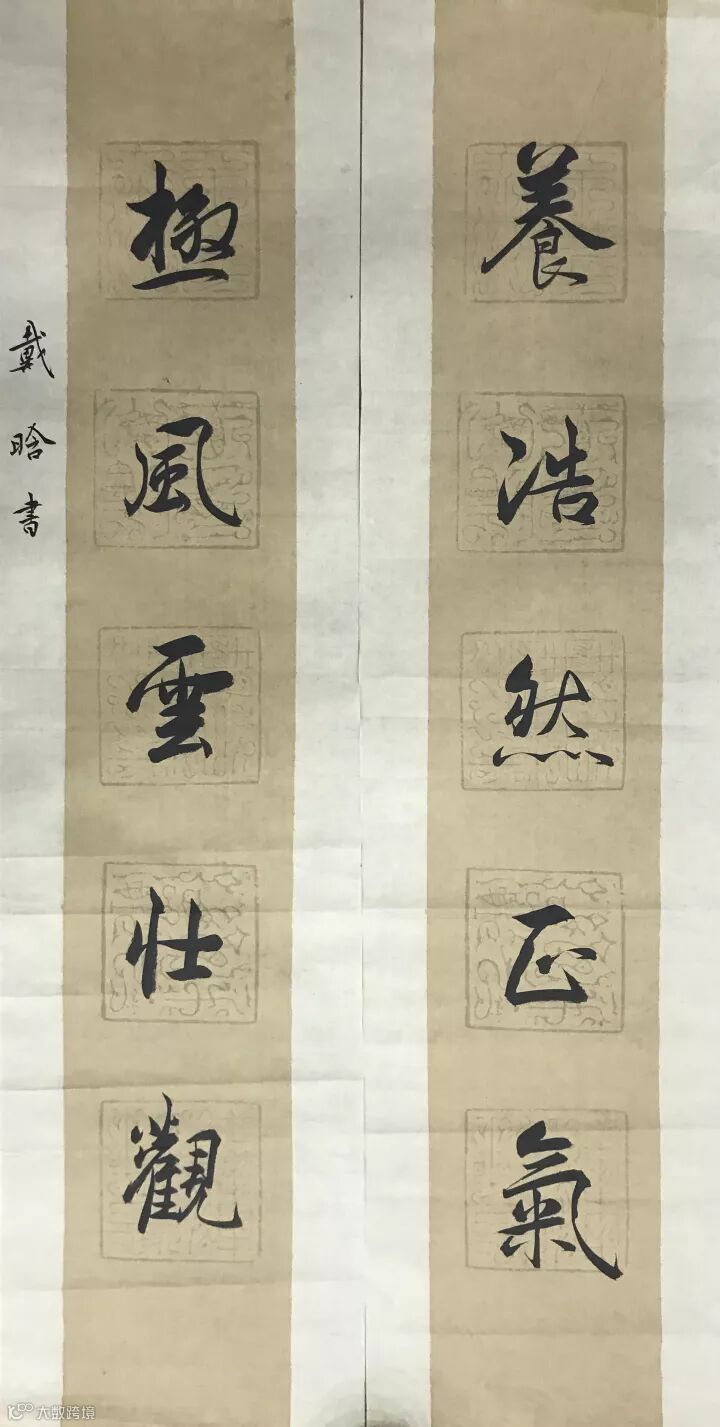 養浩然正氣
極風雲壯觀
戴晗書
大数跨境